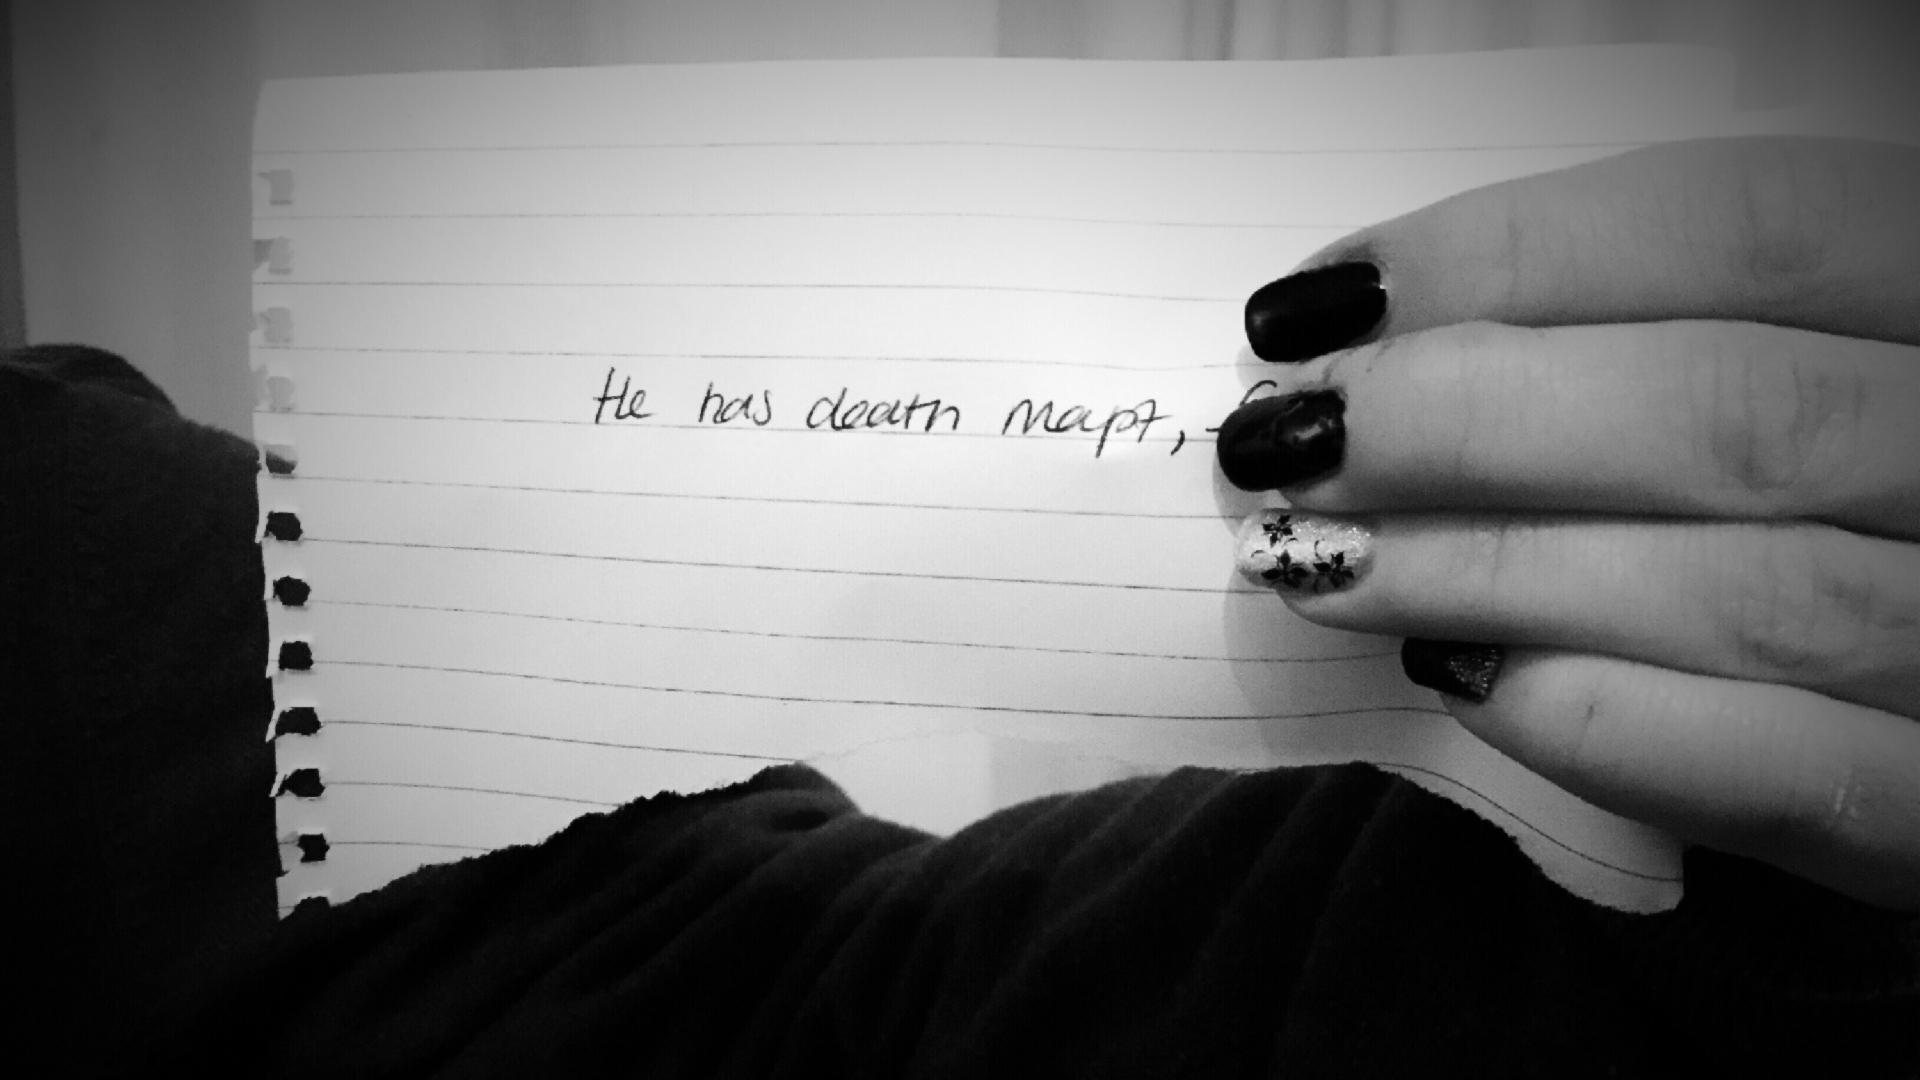 He has death mapt,